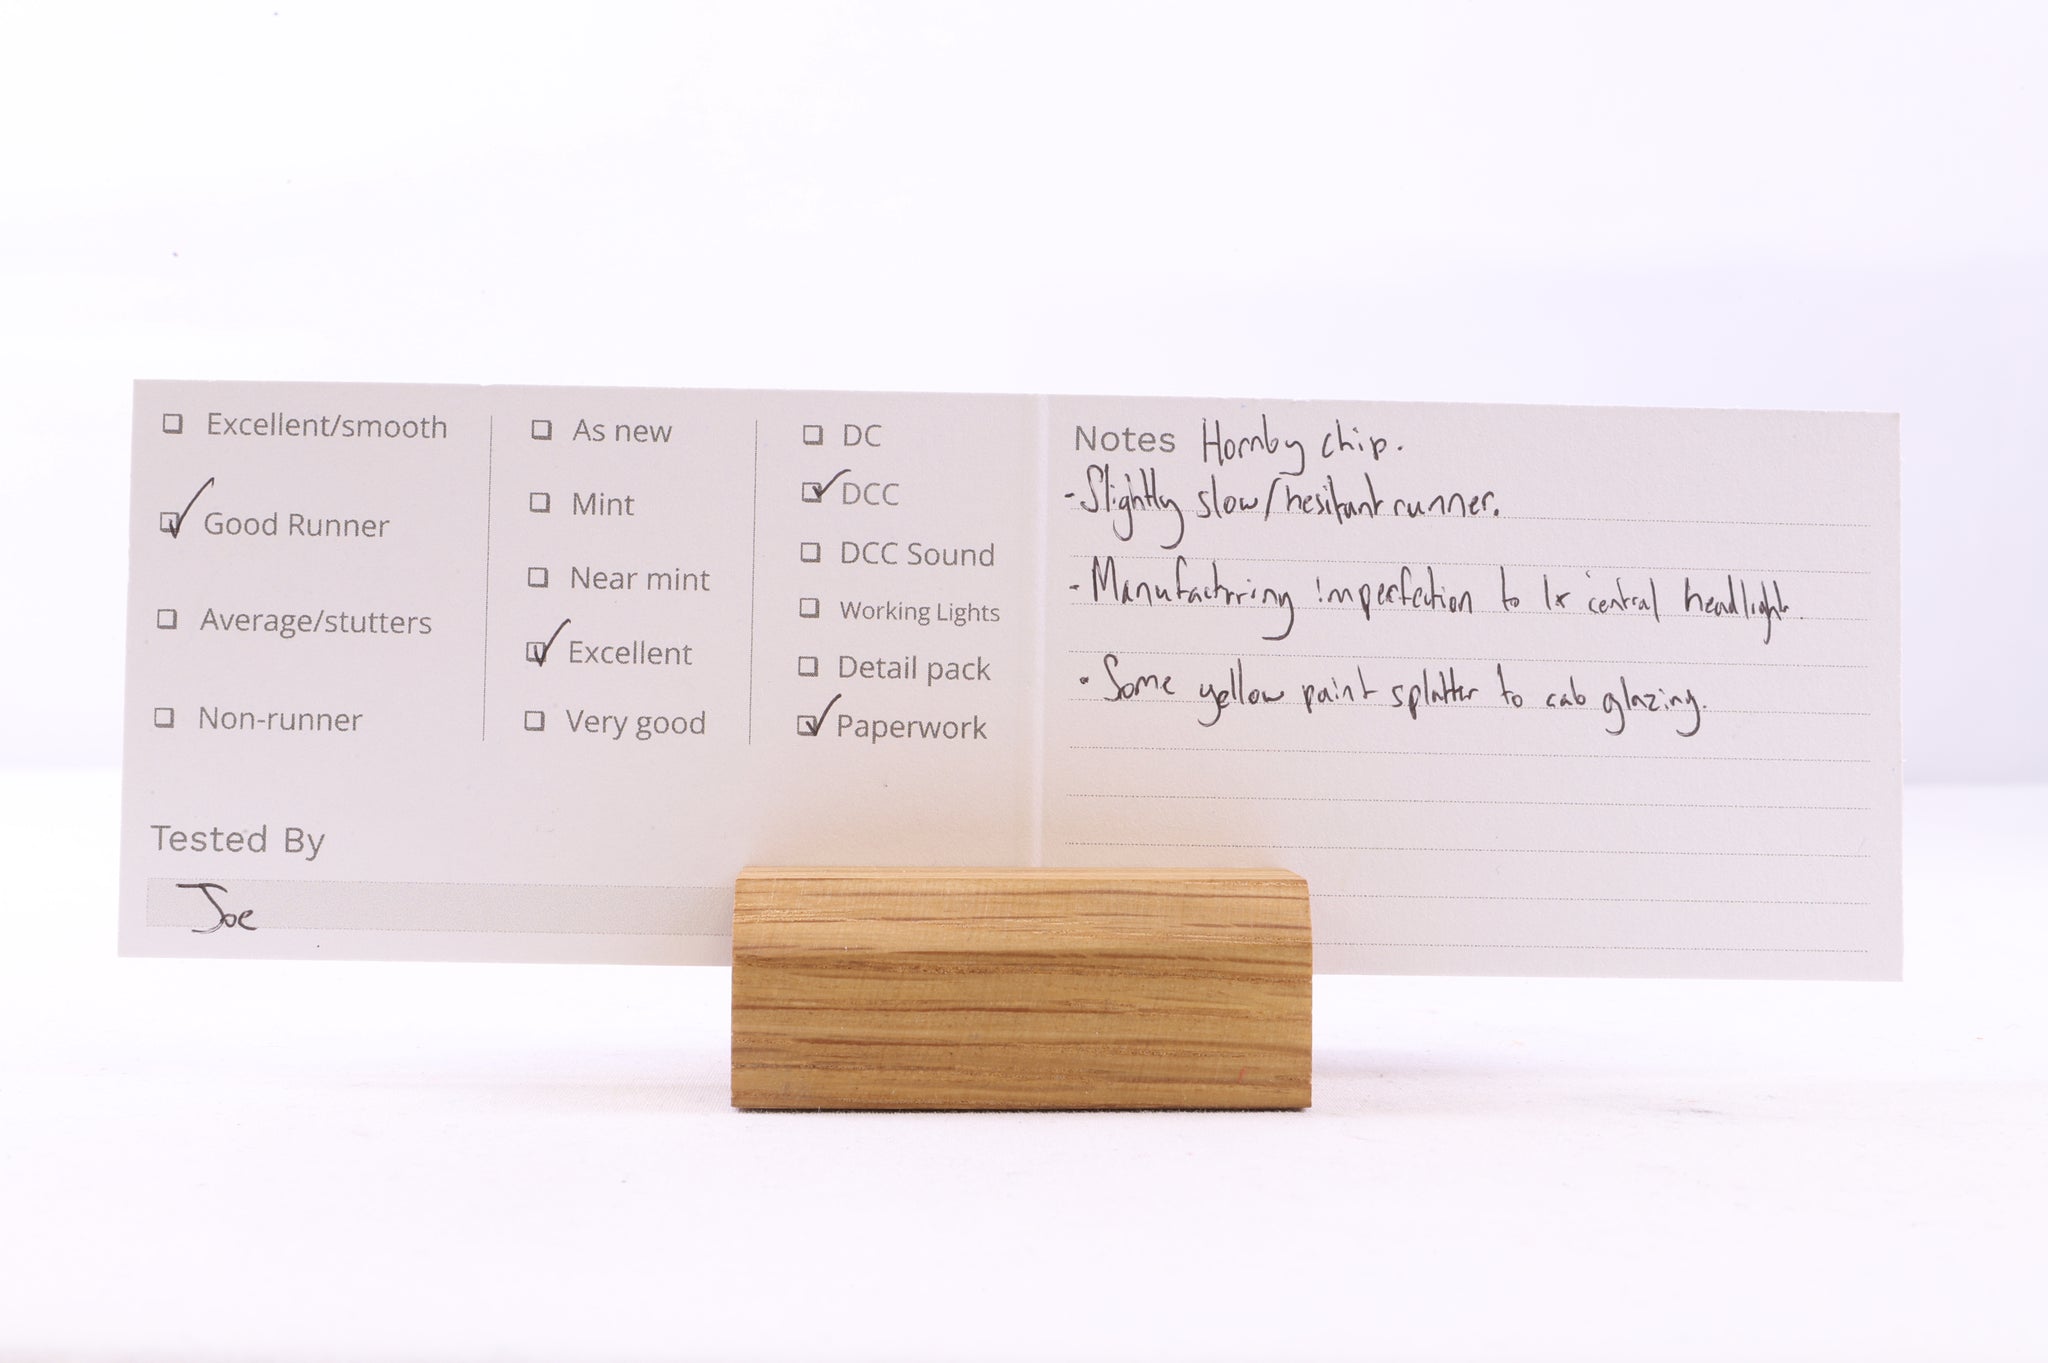 Excellent/smooth
Good Runner
Average/stutters
Non-runner
As new
Mint
Near mint
Excellent
Very good
DC
DCC
DCC Sound
Working Lights
Detail pack
Paperwork
Tested By
Joe
Notes Hornby chip.
- Slightly slow/hesitant runner.
- Manufactrring imperfection to 1x central headlight.
- Some yellow paint splatter to cab glazing.